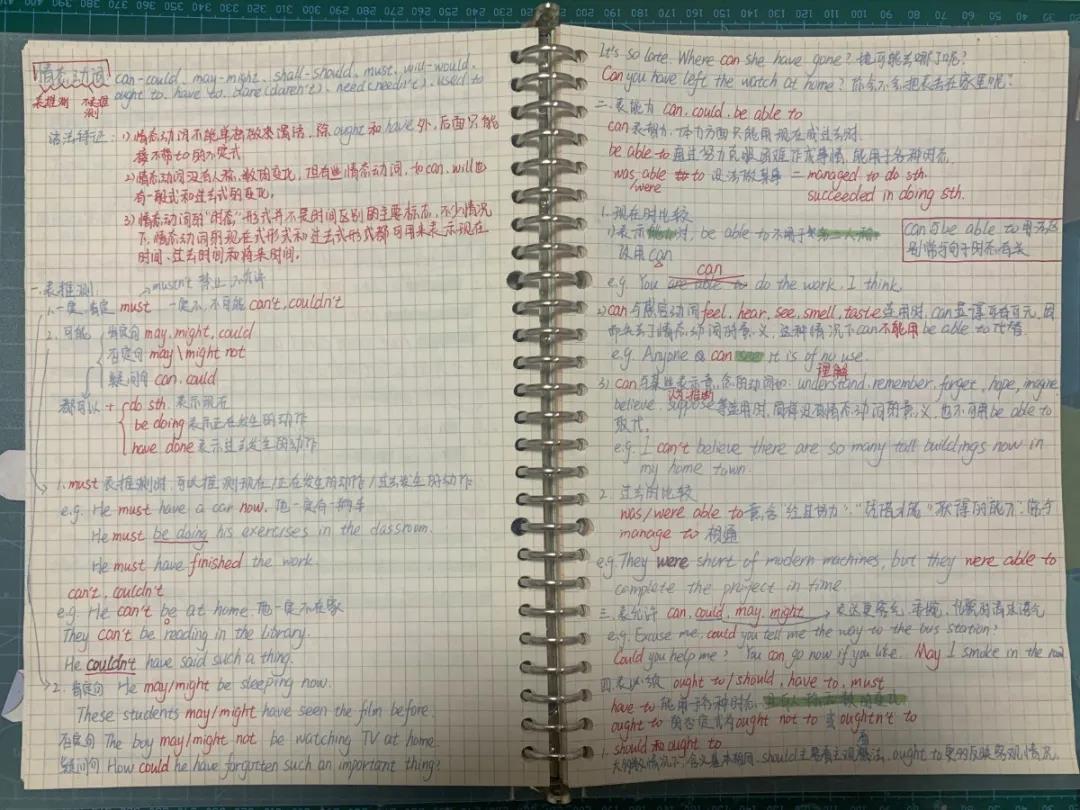 情态动词 can-could、may-might、shall-should、must、will-would、
ought to、have to、dare(daren't)、need(needn't)、used to
表推测 不表推测
语法特征: 1) 情态动词不能单独做来谓语, 除 ought 和 have 外, 后面只能
接不带to的不定式
2) 情态动词没有人称、数的变化, 但有些情态动词, 如 can、will也
有一般式和过去式的变化。
3) 情态动词的"时态"形式并不是时间区别的主要标志, 不少情况
下, 情态动词的现在式形式和过去式形式都可用来表示现在
时间、过去时间和将来时间。
一.表推测: mustn't 禁止 不允许
1.一定,肯定 must 一定不、不可能 can't, couldn't
2. 可能 肯定句 may, might, could
否定句 may \ might not
疑问句 can, could
都可以 + do sth. 表示现在
be doing 表示正在发生的动作
have done 表示过去发生的动作
1. must 表推测时, 可以推测现在/正在发生的动作/过去发生的动作
e.g. He must have a car now. 他一定有一辆车
He must be doing his exercises in the classroom.
He must have finished the work.
can't, couldn't
e.g. He can't be at home. 他一定不在家
They can't be reading in the library.
He couldn't have said such a thing.
2. 肯定句 He may/might be sleeping now.
These students may/might have seen the film before.
否定句 The boy may/might not be watching TV at home.
疑问句 How could he have forgotten such an important thing?
It's so late. Where can she have gone? 她可能去哪了呢?
Can you have left the watch at home? 你会不会把表丢在家里呢?
二.表能力 can, could, be able to
can 表努力、体力方面只能用现在或过去时.
be able to 通过努力克服困难作成事情, 能用于各种时态.
was/were able to 设法做某事 = managed to do sth.
succeeded in doing sth.
1. 现在时比较
1) 表示能力时, be able to 不用于
仅用 can
can 与 be able to 用法区
别常与句子时态有关
can
e.g. You are able to do the work, I think.
2) can 与感官动词 feel, hear, see, smell, taste 连用时, can 显得可有可无, 因
而失去了情态动词的意义, 这种情况下 can 不能用 be able to 代替.
e.g. Anyone can see it is of no use.
理解
3) can 与某些表示意念的动词如: understand, remember, forget, hope, imagine
believe, suppose 等连用时, 同样没有情态动词的意义, 也不可用 be able to
取代.
e.g. I can't believe there are so many tall buildings now in
my home town.
2. 过去时比较
was/were able to 意含"经且努力", "获得的能力", 常与
manage to 相通
e.g. They were short of modern machines, but they were able to
complete the project in time.
三.表允许 can, could, may, might → 表达更客气、委婉、礼貌的请求语气
e.g. Excuse me, could you tell me the way to the bus station?
Could you help me? You can go now if you like. May I smoke in the room
四.表必须 ought to/should, have to, must
have to 能用于各种时态,
ought to 的否定式为 ought not to 或 oughtn't to
should 和 ought to
大多数情况下, 含义基本相同, should 主要看主观看法, ought to 更多反映客观情况.